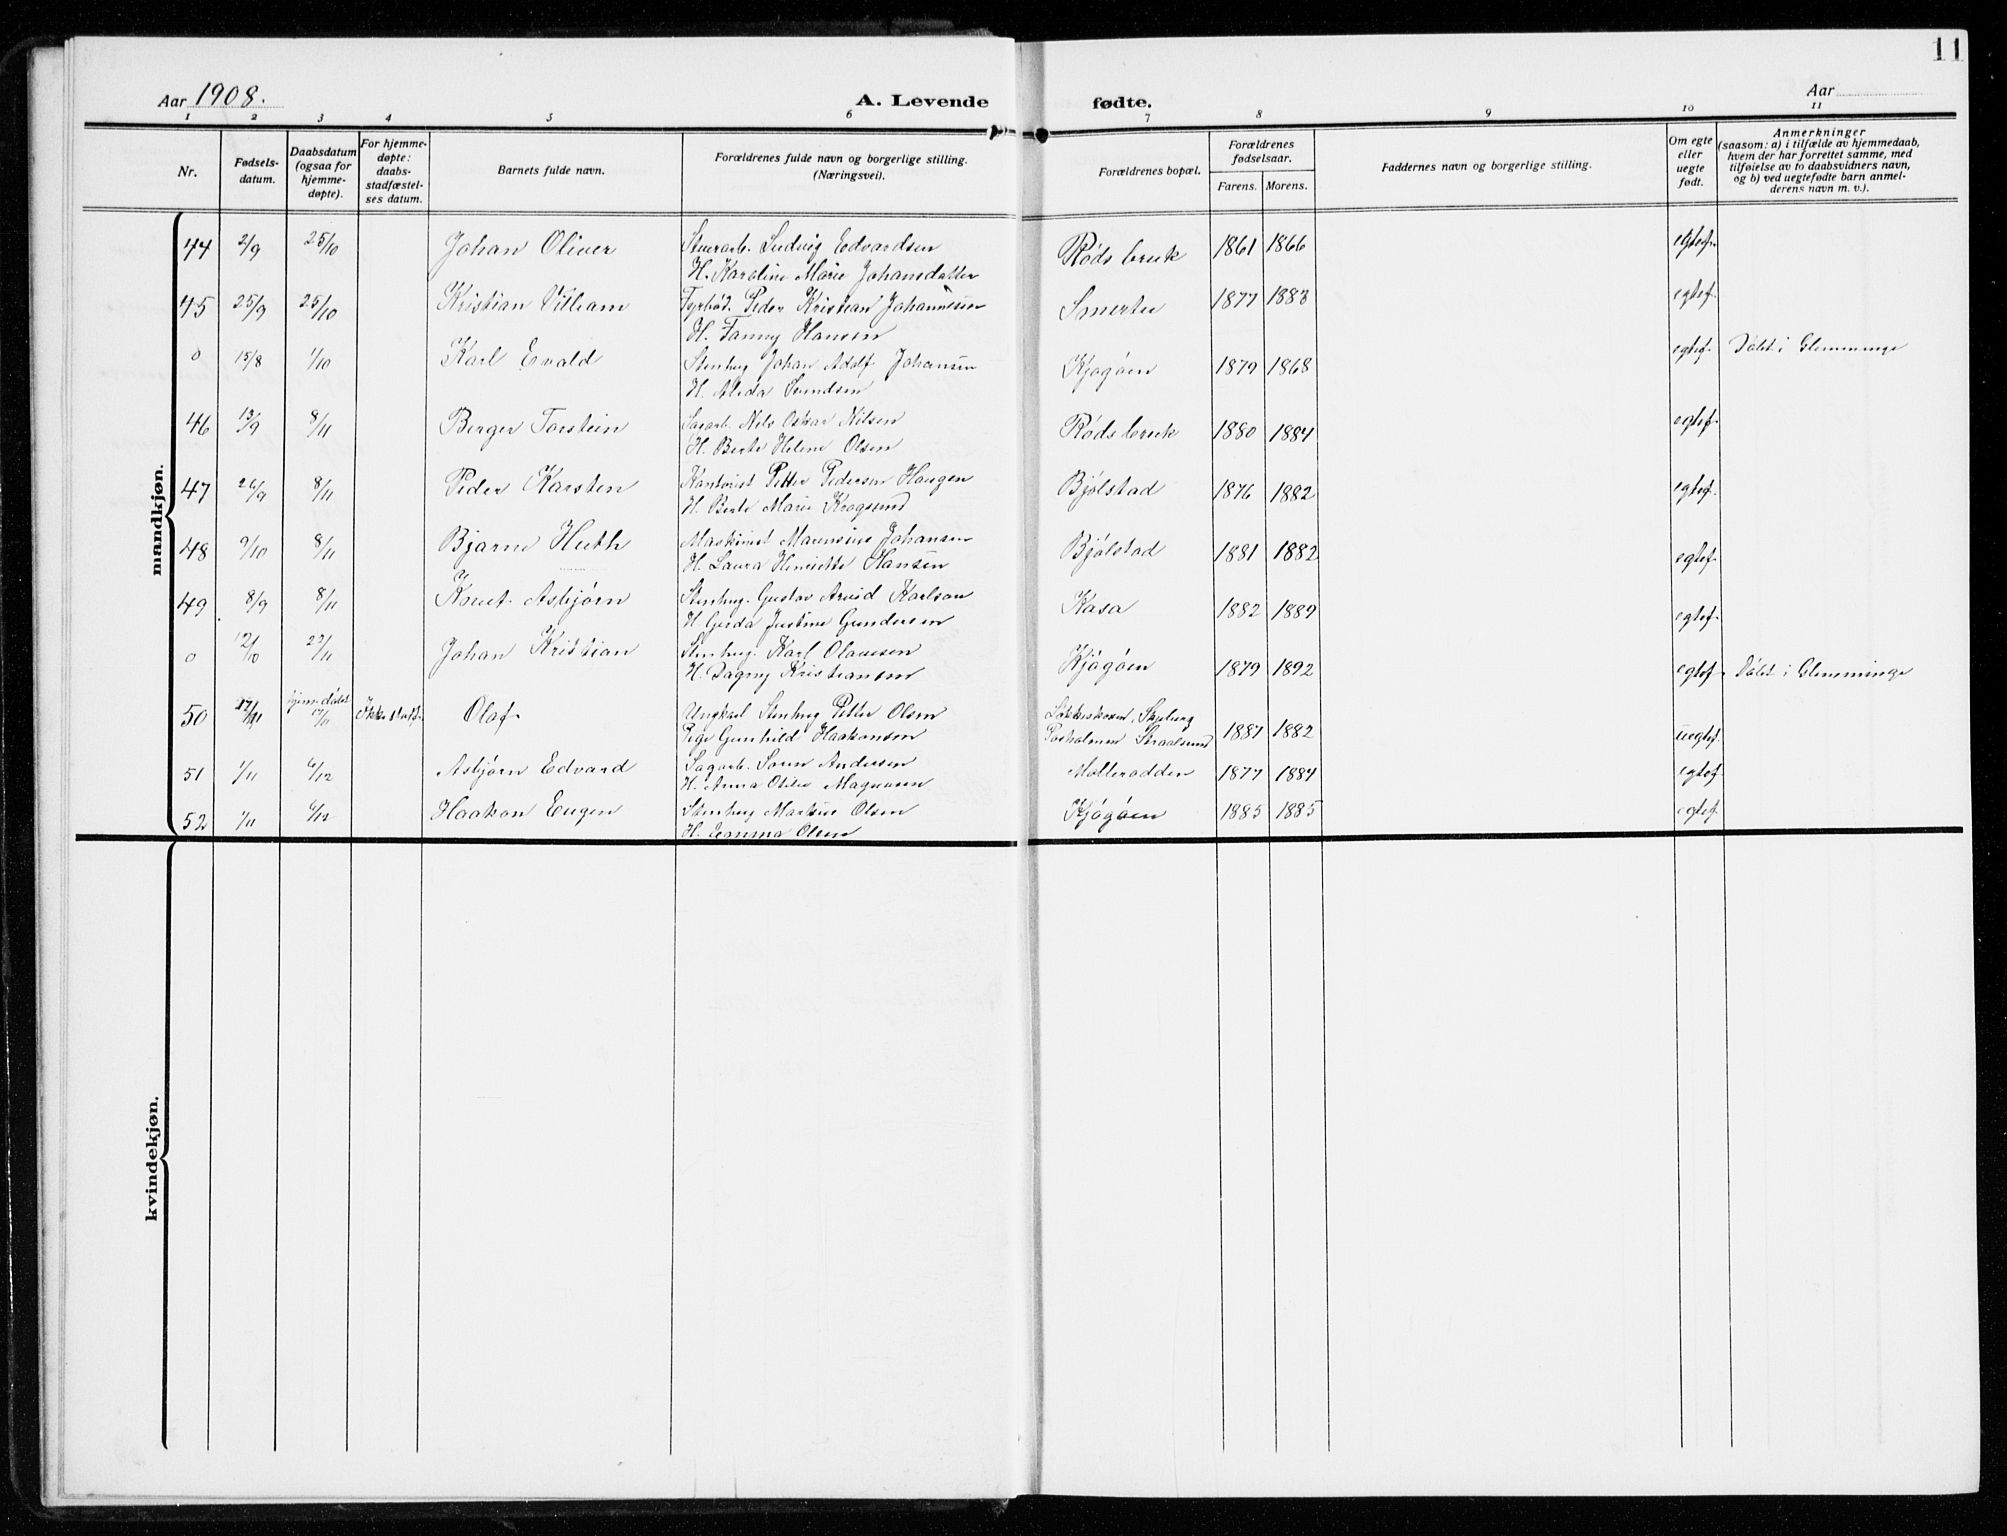 11
Aar 1908.
A. Levende fødte.
Aar
1 2 3 4 5 6 7 8 9 10 11
Nr.
Fødsels-
datum.
Daabsdatum
(ogsaa for
hjemme-
døpte).
For hjemme-
døpte:
daabs-
stadfæstel-
ses datum.
Barnets fulde navn.
Forældrenes fulde navn og borgerlige stilling.
(Næringsvei).
Forældrenes bopæl.
Forældrenes
fødselsaar.
Farens. Morens.
Faddernes navn og borgerlige stilling.
Om egte
eller
uegte
født.
Anmerkninger
(saasom: a) i tilfælde av hjemmedaab,
hvem der har forrettet samme, med
tilføielse av to daabsvidners navn,
og b) ved uegtefødte barn anmel-
derens navn m. v.).
mandkjøn.
44 2/9 25/10 Johan Oliver Ludvig Edvardsen Røds bruk 1861 1866 egtef.
H. Karoline Marie Johansdatter
45 25/9 25/10 Kristian Villiam Fyrbød. Peder Kristian Johannesen Smertu 1877 1883 egtef.
H. Fanny Hansen
0 15/8 1/10 Karl Evald Stenhug Johan Adolf Johansen Kjøgøen 1879 1868 egtef. Døbt i Glemminge
H. Alida Svendsen
46 13/9 8/11 Berger Torstein Nils Oskar Nilsen Røds bruk 1880 1884 egtef.
H. Berte Helene Olsen
47 26/9 8/11 Peder Karsten Kontorist Petter Pedersen Haugen Bjølstad 1876 1882 egtef.
H. Berte Marie Krogsund
48 9/10 8/11 Bjarne Huth Maskinist Marensius Johansen Bjølstad 1881 1882 egtef.
H. Laura Henriette Hansen
49 8/9 8/11 Knut Asbjørn Stenhug. Gustav Arvid Karlson Kasa 1882 1889 egtef.
H. Gerda Justine Gundersen
0 12/10 22/11 Johan Kristian Stenhug. Karl Olausen Kjøgøen 1879 1892 egtef. Døbt i Glemminge
H. Dagny Kristiansen
50 17/11 hjem. døbt 17/11 Ikke stadf. Olaf Ungkarl Stenhug Petter Olsen Skjeberg 1887 1882 uegtef.
Pige Gunhild Haakonsen
51 1/11 6/12 Asbjørn Edvard Sagarb. Søren Andersen Møllerodden 1877 1884 egtef.
H. Anna Otilie Magnusen
52 1/11 6/12 Haakon Eugen Stenhug Markus Olsen Kjøgøen 1885 1885 egtef.
H. Emma Olsen
kvindekjøn.